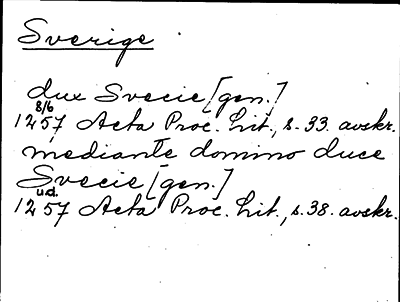 Sverige
dux Svecie [gen.]
8/6
1257 Acta Proc. Lit., s. 33. avskr.
mediante domino duce
Svecie [gen.]
u.d.
1257 Acta Proc. Lit., s. 38. avskr.